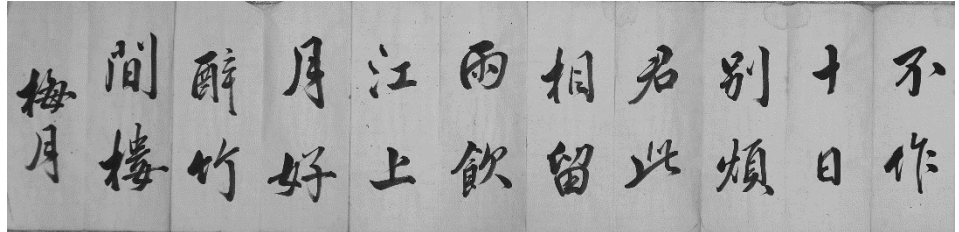 不作
十日
別煩
君此
相留
雨飲
江上
月好
醉竹
間樓
梅月